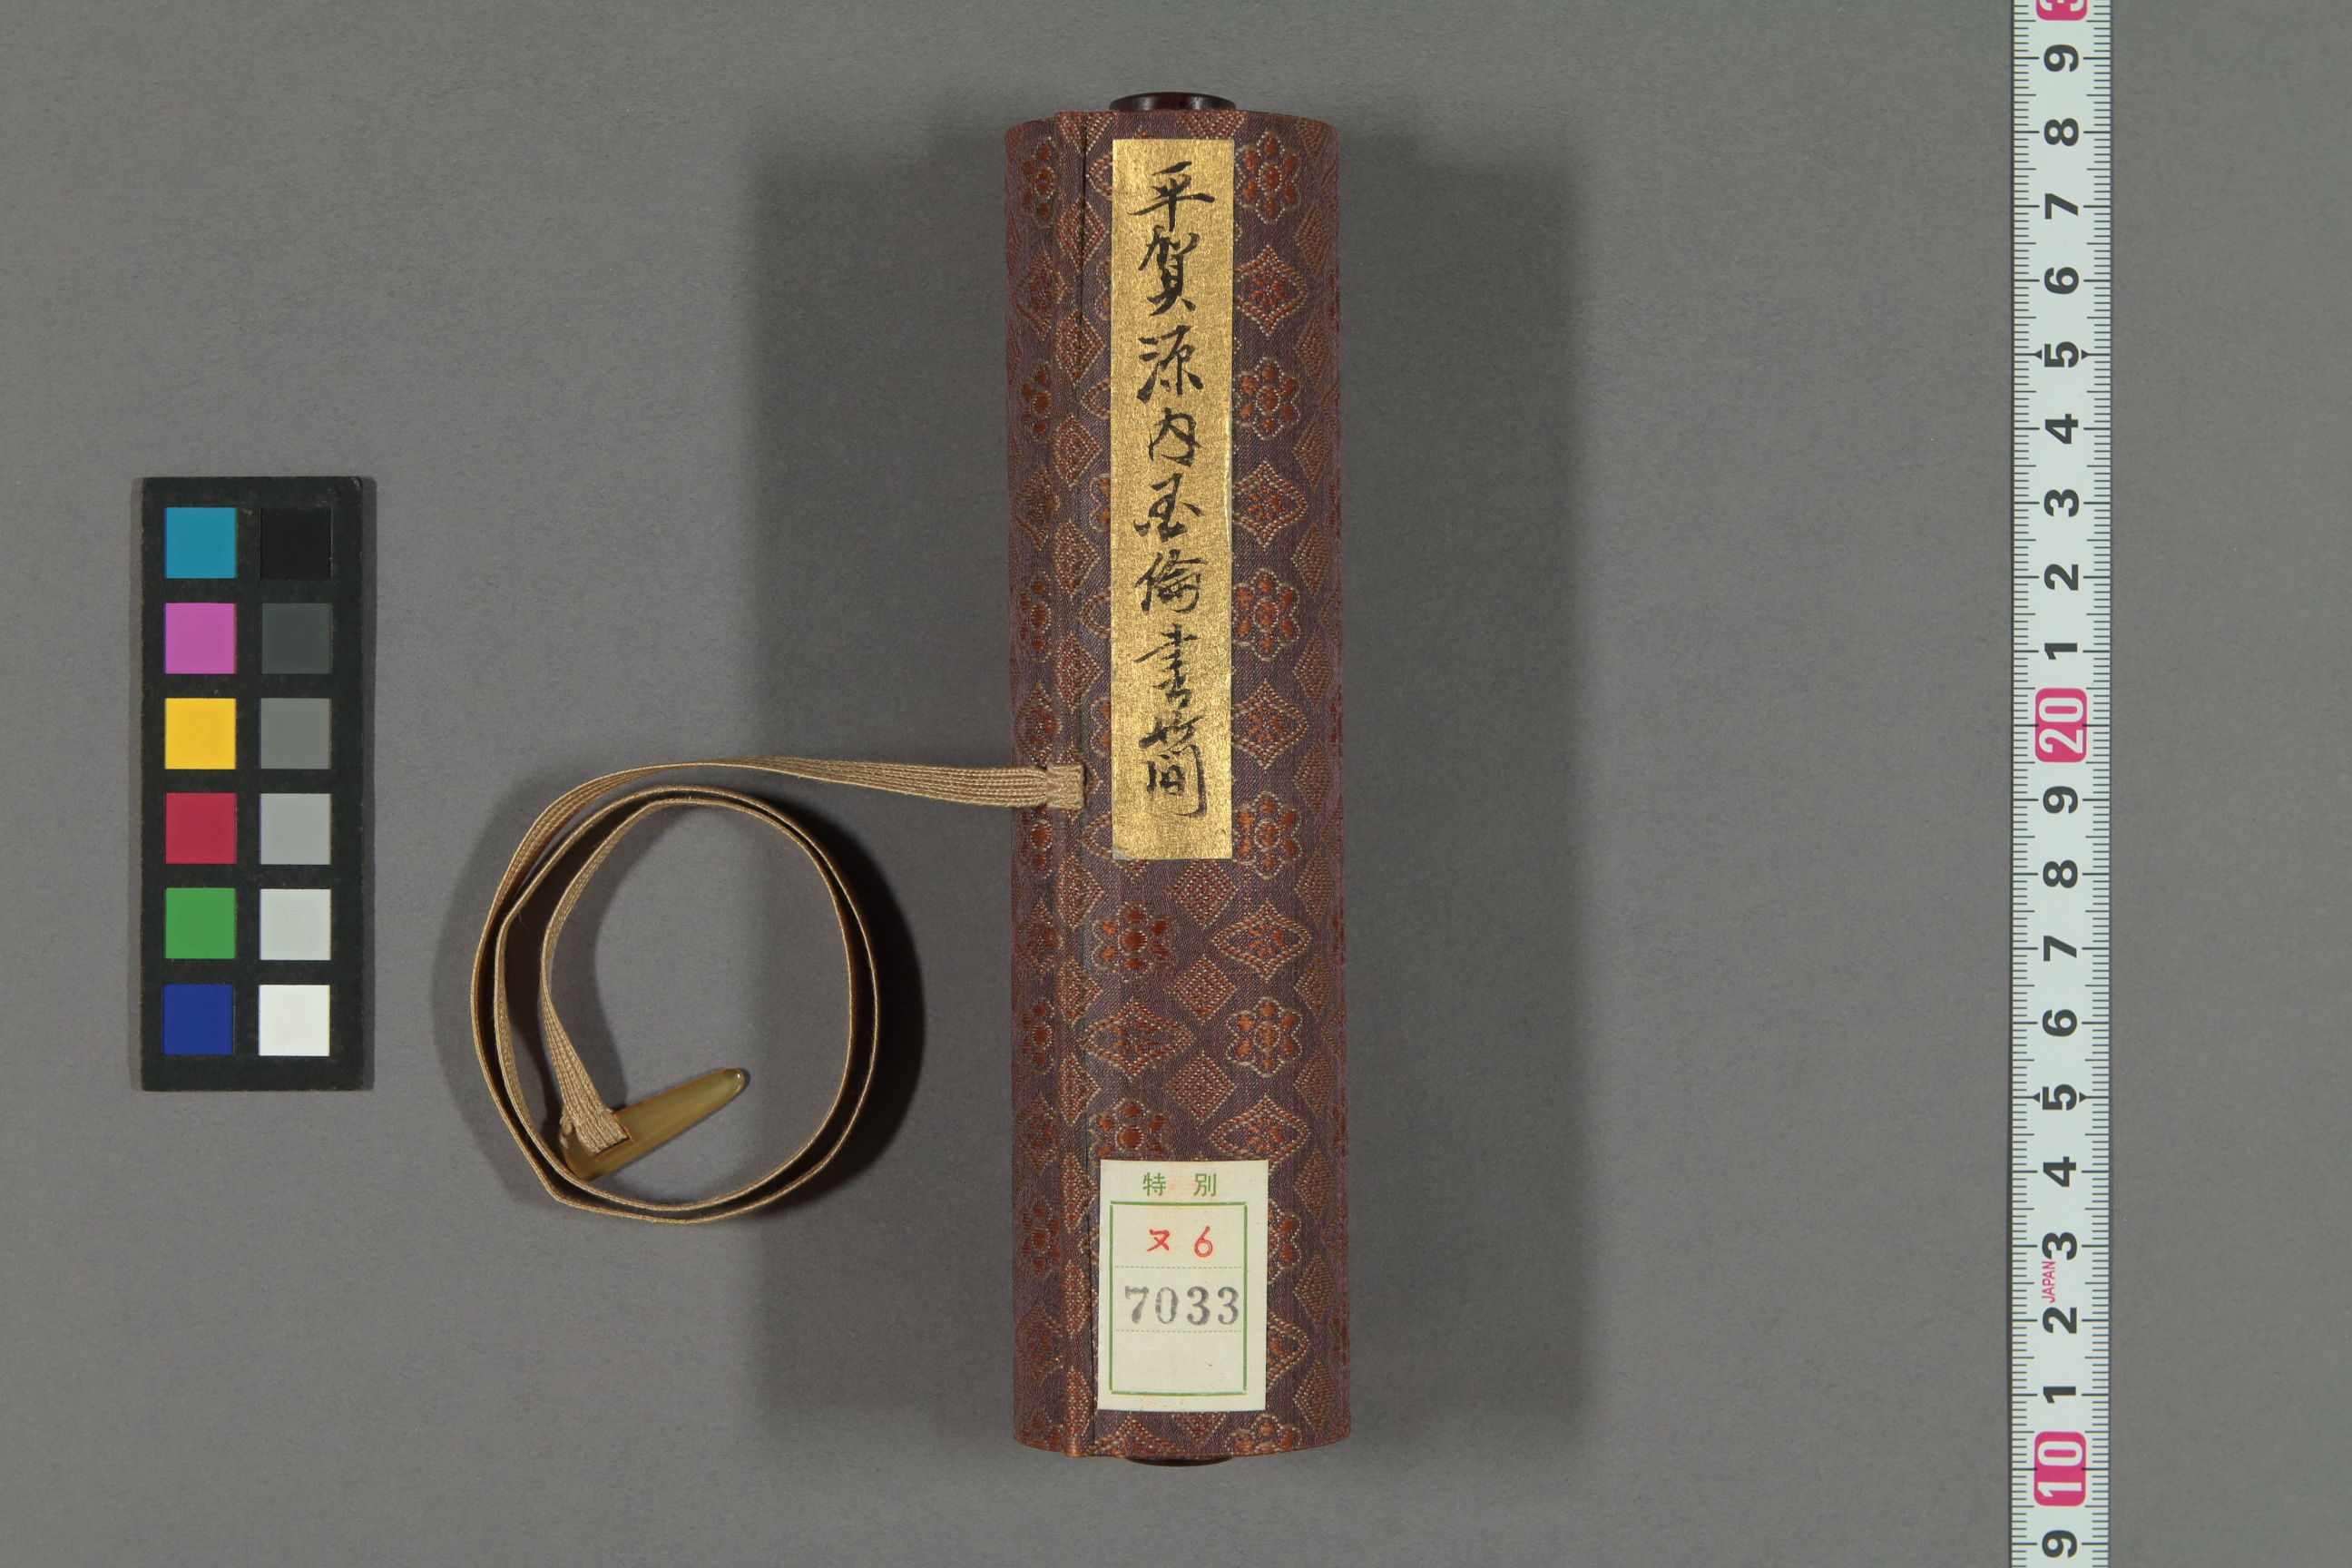 平賀源内国倫書簡
特別
ヌ6
7033
9 8 7 6 5 4 3 2 1 20 9 8 7 6 5 4 3 2 1 10 9
JAPAN